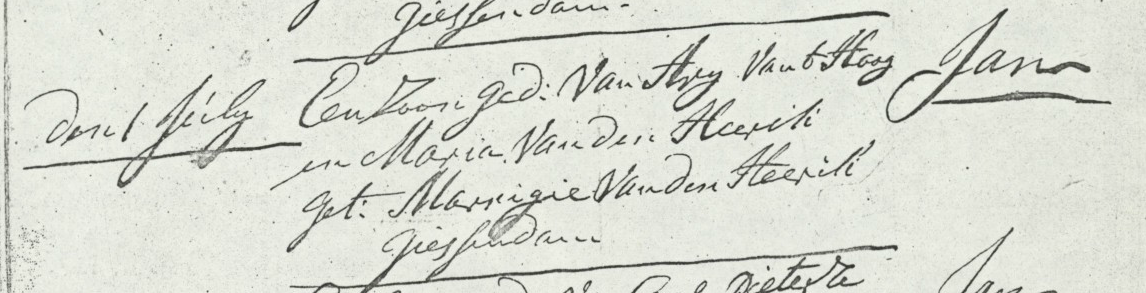 Giessendam.
den 1 Júly Een Zoon ged: Van Ary Van t Hoog Jan
en Maria Van den Heerik
get: Marrigie Van den Heerik
Giessendam
Pieterze Jan